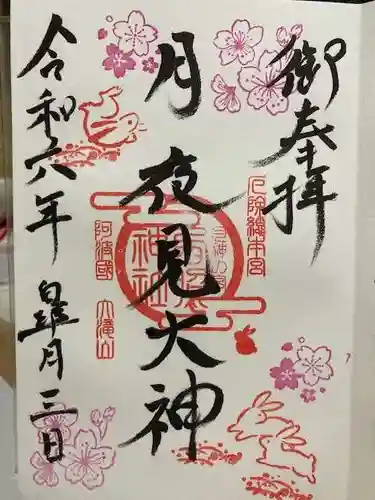 御奉拝
月夜見大神
令和六年 皐月三日
厄除鎮本宮
阿波國 大滝山
神社